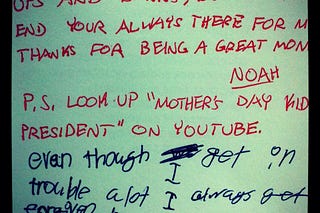 END YOUR ALWAYS THERE FOR M
THANKS FOR BEING A GREAT MOM
NOAH
P.S. LOOK UP "MOTHER'S DAY KID
PRESIDENT" ON YOUTUBE.
even though I get in
trouble alot I always get